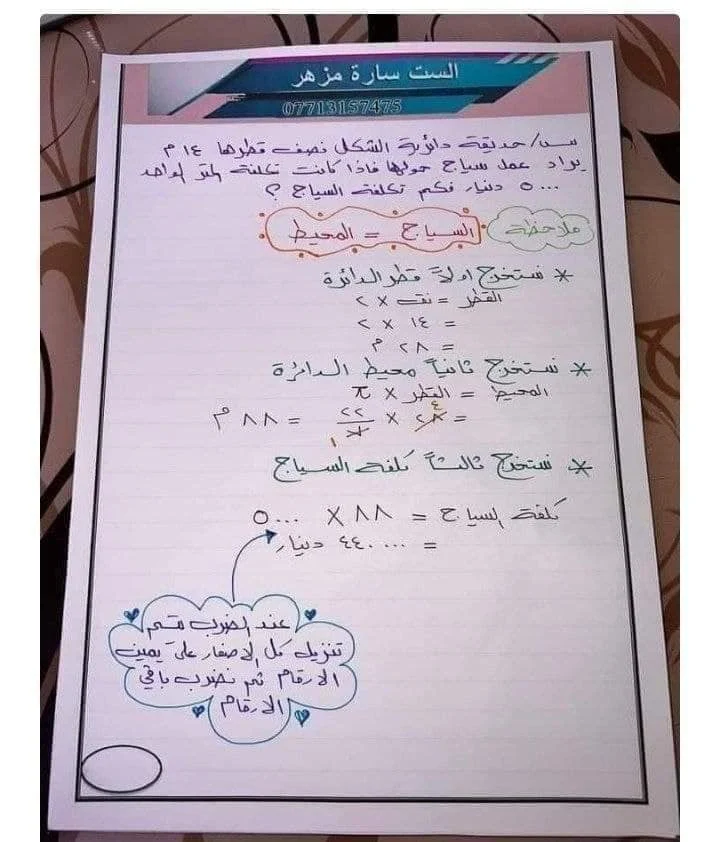 الست سارة مزهر
07713157475
س/ حديقة دائرية الشكل نصف قطرها ١٤ م
يراد عمل سياج حولها فاذا كانت تكلفة المتر الواحد
٥٠٠٠ دنيار فكم تكلفة السياج ؟
ملاحظة السياج = المحيط
* نستخرج اولاً قطر الدائرة
القطر = نق × ٢
= ١٤ × ٢
= ٢٨ م
* نستخرج ثانياً محيط الدائرة
المحيط = القطر × π
= ٢٨ ٤ × ٢٢/٧ ١ = ٨٨ م
* نستخرج ثالثاً كلفة السياج
كلفة السياج = ٨٨ × ٥٠٠٠
= ٤٤٠٠٠٠ دنيار
عند الضرب يتم
تنزيل كل الاصفار على يمين
الارقام ثم نضرب باقي
الارقام